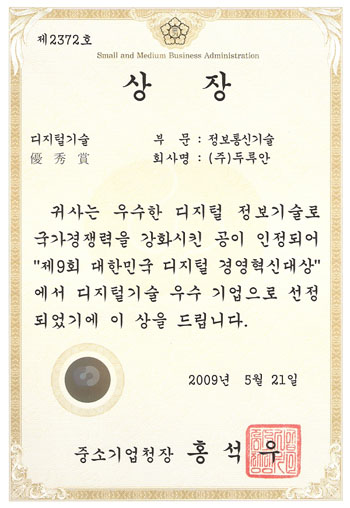 제2372호
Small and Medium Business Administration
상 장
디지털기술 부 문 : 정보통신기술
優秀賞 회사명 : (주)두류안
귀사는 우수한 디지털 정보기술로
국가경쟁력을 강화시킨 공이 인정되어
"제9회 대한민국 디지털 경영혁신대상"
에서 디지털기술 우수 기업으로 선정
되었기에 이 상을 드립니다.
2009년 5월 21일
중소기업청장 홍 석 우